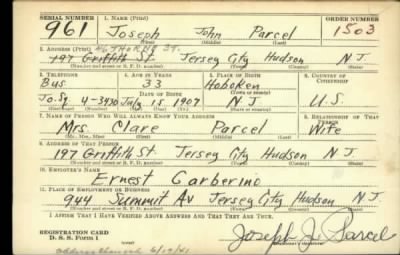 SERIAL NUMBER 1. NAME (Print) ORDER NUMBER
961 Joseph John Parcel 1503
(First) (Middle) (Last)
2. ADDRESS (Print) 46 THORNE ST.
197 Griffith St Jersey City Hudson N J
(Number and street or R. F. D. number) (Town) (County) (State)
3. TELEPHONE 4. AGE IN YEARS 5. PLACE OF BIRTH 6. COUNTRY OF CITIZENSHIP
Bus 33 Hoboken
DATE OF BIRTH (Town or county)
Jo.Sq 4-3430 July 15 1907 N.J U.S.
(Exchange) (Number) (Mo.) (Day) (Yr.) (State or country)
7. NAME OF PERSON WHO WILL ALWAYS KNOW YOUR ADDRESS 8. RELATIONSHIP OF THAT PERSON
Mrs. Clare Parcel Wife
(Mr., Mrs., Miss) (First) (Middle) (Last)
9. ADDRESS OF THAT PERSON
197 Griffith St Jersey City Hudson N J
(Number and street or R. F. D. number) (Town) (County) (State)
10. EMPLOYER'S NAME
Ernest Garberino
11. PLACE OF EMPLOYMENT OR BUSINESS
944 Summit Av Jersey City Hudson N J
(Number and street or R. F. D. number) (Town) (County) (State)
I AFFIRM THAT I HAVE VERIFIED ABOVE ANSWERS AND THAT THEY ARE TRUE.
REGISTRATION CARD
D. S. S. Form 1 Joseph J. Parcel
(Registrant's signature)
Address changed 6/19/41